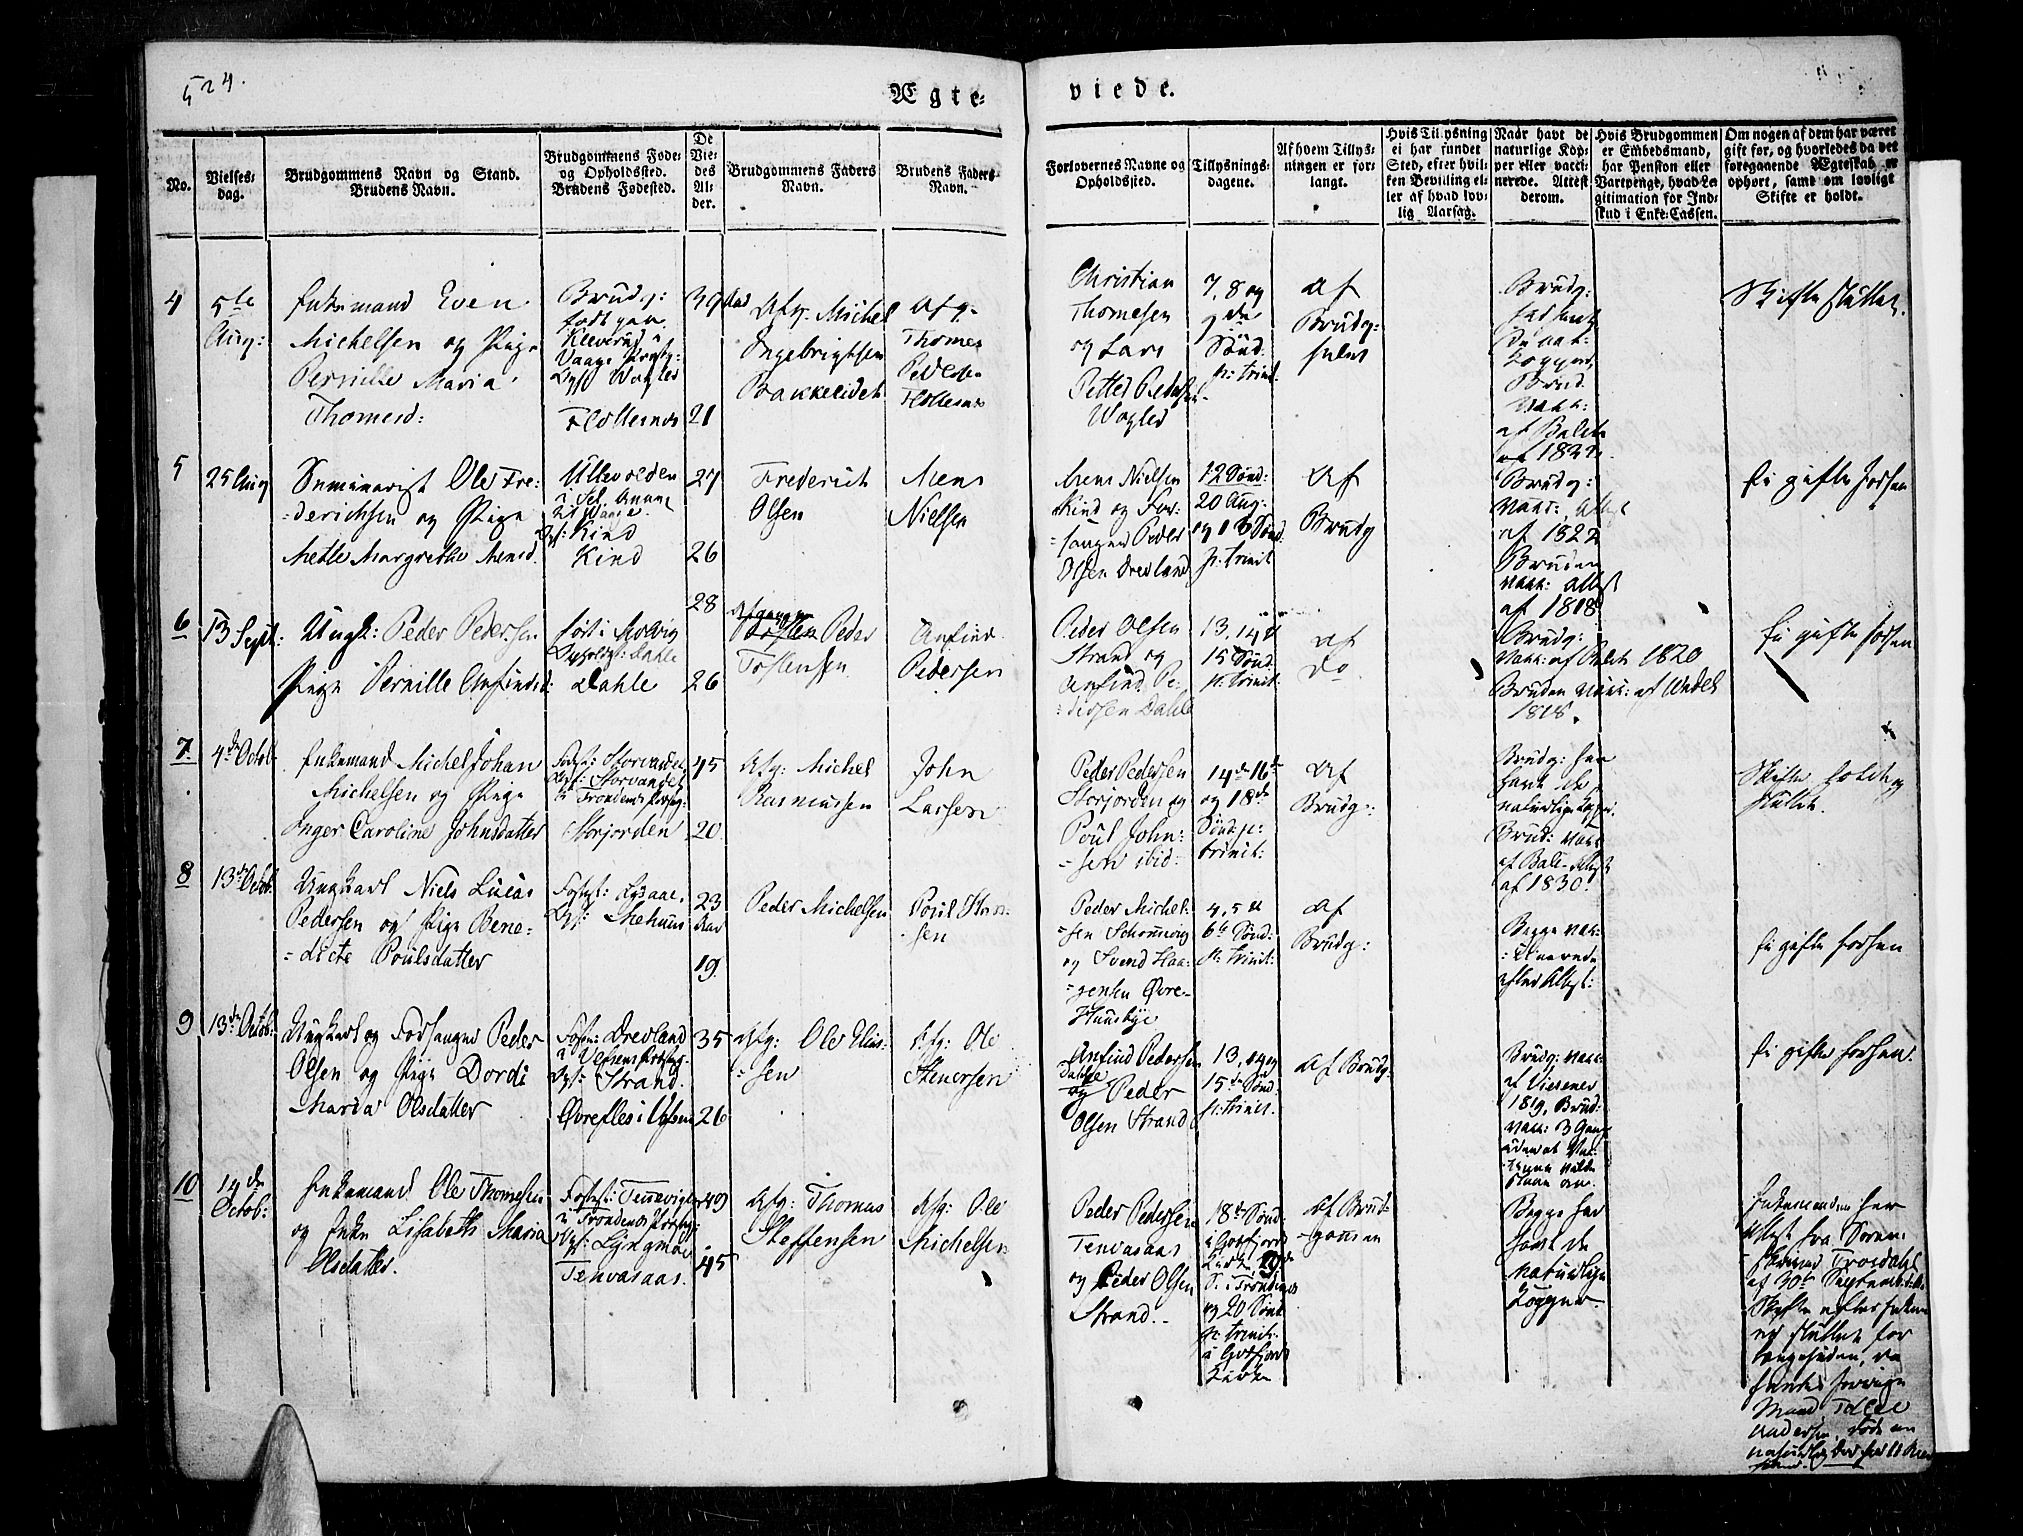 524.
Ægte-
viede.
No.
Vielses-
dag.
Brudgommens Navn og Stand.
Brudens Navn.
Brudgommens Føde-
og Opholdssted.
Brudens Fødested.
De
Vie-
des
Al-
der.
Brudgommens Faders
Navn.
Brudens Faders
Navn.
Forlovernes Navne og
Opholdssted.
Tillysnings-
dagene.
Af hvem Tillys-
ningen er for-
langt.
Hvis Tillysning
ei har fundet
Sted, efter hvil-
ken Bevilling el-
ler af hvad lov-
lig Aarsag.
Naar havt de
naturlige Kop-
per eller vacci-
nerede. Attest
derom.
Hvis Brudgommen
er Embedsmand,
har Pension eller
Vartpenge, hvad Le-
gitimation for Ind-
skud i Enke-Cassen.
Om nogen af dem har været
gift før, og hvorledes da det
foregaaende Ægteskab er
ophørt, samt om lovligt
Skifte er holdt.
4
5te
Aug:
Enkemand Even
Michelsen og Pige
Pernille Maria
Thomesd:
Brudg:
født paa
Kleverud i
Vaage Præstg:
Flottesnes
39 Aar
21
Afg. Michel
Ingebrigtsen
Bakkelidet
Afg.
Thomes
Peders
Flottesnes
Christian
Thomesen
og Lars
Petter Peders-
Vogler
7, 8 og
9de
Sönd:
p: trinit.
Af
Brudg:
selv
Brudg:
Kopper,
Brud
vakk:
af Balch
af 1827.
Skifte sluttet.
5
25 Aug
Seminarist Ole Fre-
=derichsen og Pige
Mette Margrethe Mensd.
Ullevolden
i Sel Annex
til Vaage.
Kind
Kind
27
26
Frederich
Olsen
Mens
Nielsen
Mens Nielsen
Kind og For-
=sanger Peder
Olsen Drevland
12 Sønd:
20 Aug:
og 13 Sønd:
p: trinit
Af
Brudg
Brudg:
vakc: Attest
af 1822
Bruden
vakk: Attest
af 1818
Ei gifte forhen
6
13 Sept:
Ungk: Peder Pedersen
Pige Pernille Anfindsd:
Dahle
Dahle
28
26
Afgangne
Peder
Tostensen
Anfind
Pedersen
Peder Olsen
Strand og
Anfind Pe-
dersen Dahle
13, 14 &
15 Sønd:
p: trinit.
Af
Do
Brudg:
vakk: af Balch 1820
Bruden vakk: af Wadel
1818.
Ei gifte forhen
7.
4de Octob.
Enkemand Michel Johan
Michelsen og Pige
Inger Caroline Johnsdatter
Fødst: Storvandet
Opst: Storvandet
i Trondenes Præstg:
Storjorden
45
20
Afg: Michel
Rasmussen
John
Larsen
Peder Pedersen
Storjorden og
Poul John-
=sen ibid:
14de 16de
og 18de
Sönd: p:
trinit:
Af
Brudg:
Brudg: har
havt de
naturlige Kopper.
Brud: vakk
af Balc- Attest
af 1830.
Skifte holdt og
sluttet.
8
13de Octob.
Ungkarl Niels Lucas
Pedersen og Pige Bene-
=dicte Poulsdatter
23
Aar
19.
Peder Michelsen
Poul Ham-
sen
Peder Michel-
=sen Schounvig
og Svend Haa-
=gensen Øvre-
Huusbye
4, 5 &
6te Sønd:
p: trinit:
Af
Brudg:
Begge vak-
=cinerede
efter Attest:
Ei gifte forhen
9
13de Octob:
Ungkarl og Forsanger Peder
Olsen og Pige Dordi
Maria Olsdatter
Fødst: Drevland
i Vefsens Præstg:
Opst: Strand.
Øvrefles i Vefsen
35
26
Afg: Ole Elias-
=sen
Afg: Ole
Stenersen
Anfind Pedersen
Dahle
og Peder
Olsen Strand
13, 14 og
15de Sønd:
p: trinit.
Af Brudg:
Brudg: vakk:
1819, Brud:
vakk: 3 Gange
uden at Vac-
=cinen vilde
slaae an.
Ei gifte forhen.
10
14de
Octob:
Enkemand Ole Thomesen
og Enke Lisabeth Maria
Olsdatter.
Fødst: Tennevig
i Trondenes Præstg:
Opst: Lyngmoe
Tenvasaas.
49
45
Afg: Thomas
Steffensen
Afg: Ole
Michelsen
Peder Pedersen
Tenvasaas
og Peder Olsen
Strand.
18de Sønd:
i Gotfjords
Kirke, 19de
S. i Trondenes
og 20 Sönd
p: trinit.
i Gotfjords
Kirke
Af Brud-
=gommen
Begge har
havt de
naturlige
Kopper.
Enkemanden har
Attest fra Soren-
=skriver Trosdahl
af 30te Septemb:
Skifte efter Enken
er sluttet for
længesiden, da
Enkes forrige
Mand
Andersen, døde en
naturlig Død for 11 Aar
siden.